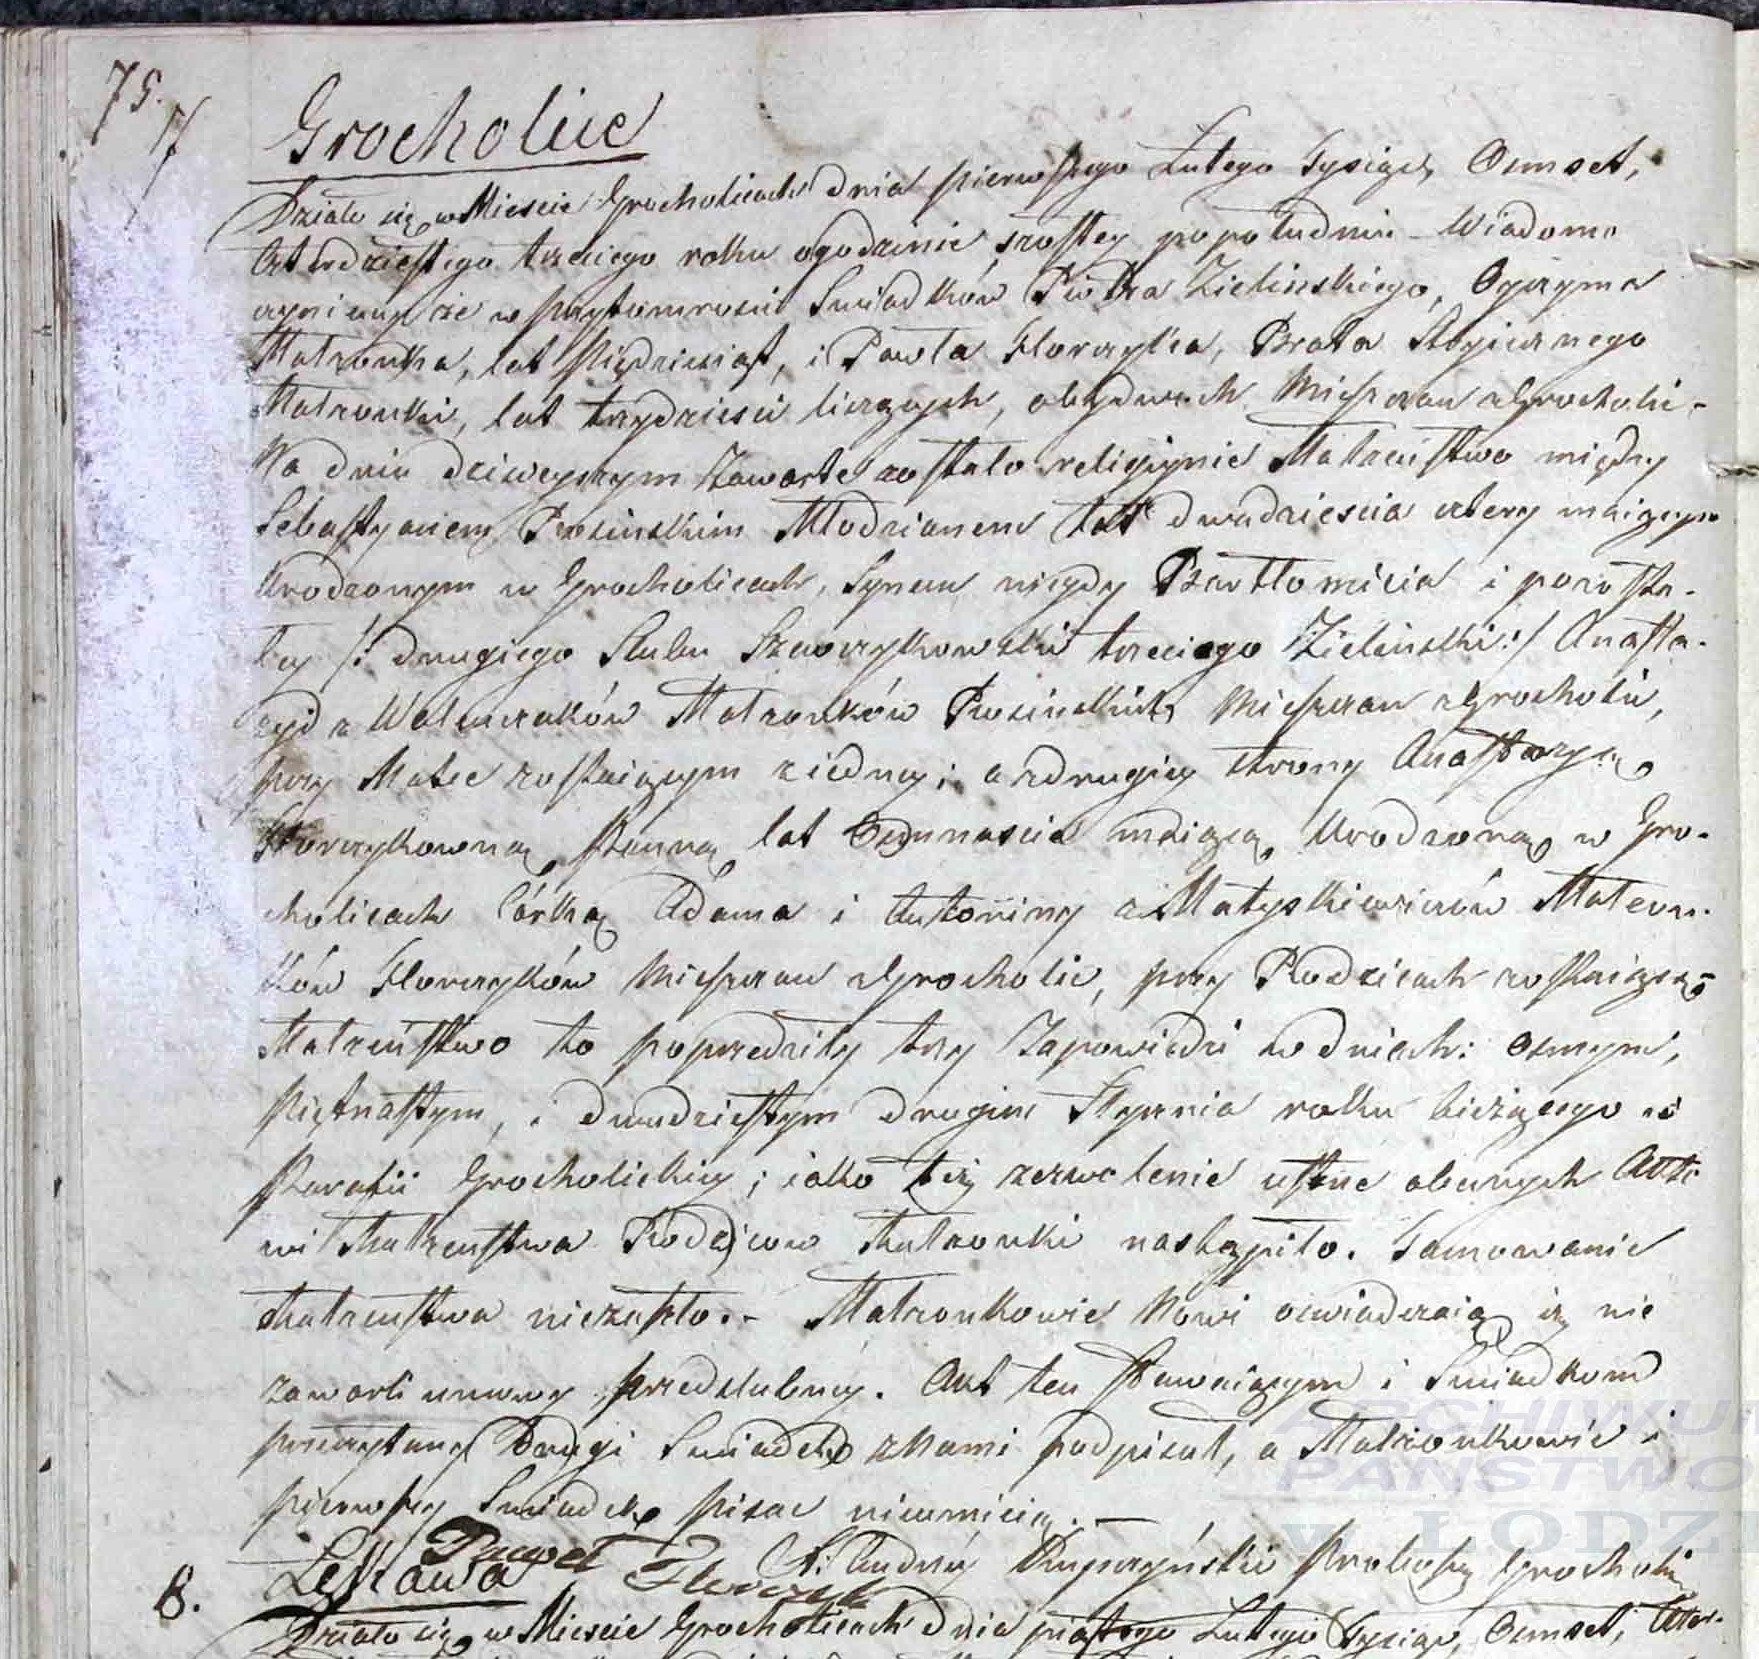 75.
7
Grocholice
Działo się w Mieście Grocholicach dnia pierwszego Lutego Tysiąc, Osmset,
czterdziestego trzeciego roku o godzinie szostey popołudniu - Wiadomo
czyniemy że w przytomności Świadków Piotra Zielinskiego, Oyczyma
Małżonka, lat piędziesiąt, i Pawła Florczyka, Brata Stryiecznego
Małżonki, lat trzydzieści liczących, obydwóch Mieszczan z Grocholic -
Na dniu dzisieyszym zawarte zostało religiynie Małżeństwo między
Sebastyanem Rosinskim Młodzianem lat dwadzieścia cztery maiącym
urodzonym w Grocholicach, Synem niegdy Bartłomieia i pozosta-
łey /: drugiego Slubu trzeciego Zielinski :/ Anasta-
zyi z Walczaków Małżonków Rosinskich Mieszczan z Grocholic,
przy Matce zostaiącym z iedney; a z drugiey strony Anastazyą
Florczykowną Panną lat Osmnaście maiącą, Urodzoną w Gro-
cholicach Córką Adama i Antoniny z Matyskiewiczów Małżon-
ków Florczyków Mieszczan z Grocholic, przy Rodzicach zostaiącą -
Małżeństwo to poprzedziły trzy Zapowiedzi w dniach: osmym,
piętnastym, i dwudziestym drugim Stycznia roku bieżącego w
Parafii Grocholickiey; iako też zezwolenie ustne obecnych Akto-
wi Małżeństwa Rodziców Małżonki nastąpiło. Tamowanie
Małżeństwa niezaszło. - Małżonkowie Nowi oswiadczaią iż nie
zawarli umowy przedslubney. Akt ten stawaiącym i Świadkom
przeczytany Drugi Świadek z Nami podpisał, a Małżonkowie i
pierwszy Świadek pisac nieumieią. -
Paweł Florczyk
X. Andrzej Kuperzyński Proboszcz Grocholic
8.
Ławawa
Działo się w Mieście Grocholicach dnia piątego Lutego Tysiąc, Osmset, Czter-
ARCHIWUM
PAŃSTWO
W ŁODZI